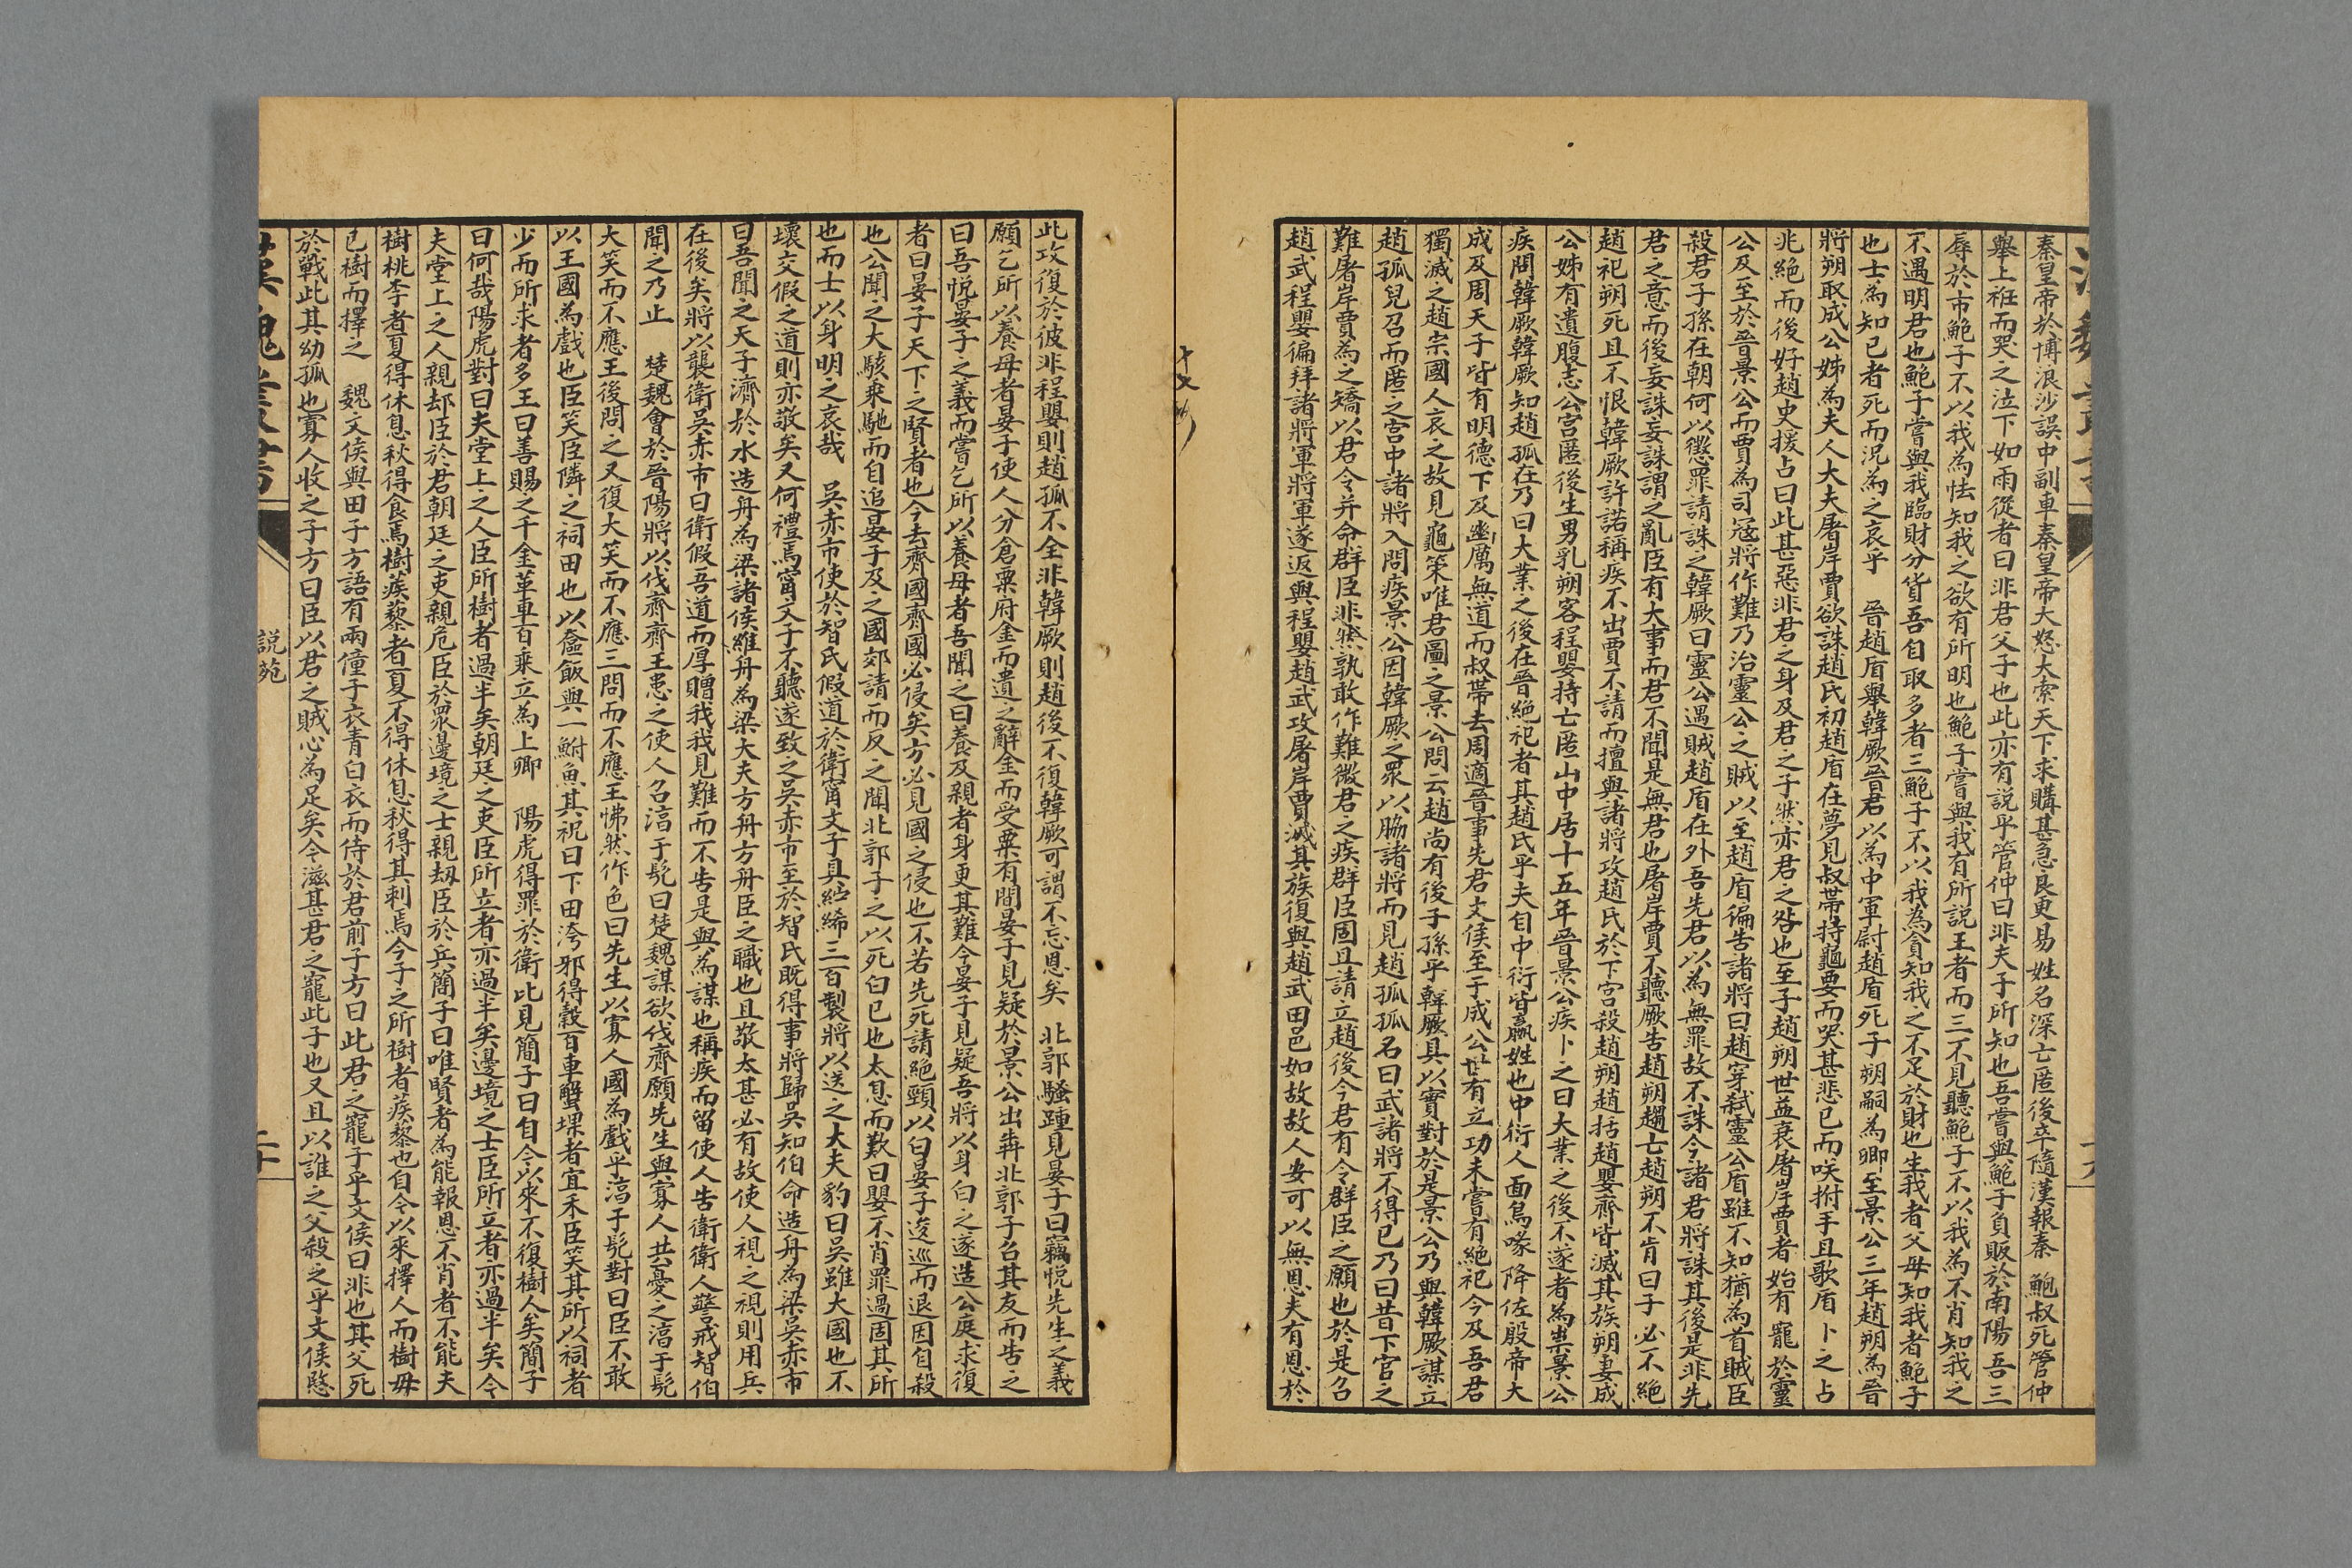 秦皇帝於博浪沙誤中副車秦皇帝大怒大索天下求購甚急良更易姓名深亡匿後卒隨漢報秦　鮑叔死管仲
舉上袵而哭之泣下如雨從者曰非君父子也此亦有說乎管仲曰非夫子所知也吾嘗與鮑子負販於南陽吾三
辱於市鮑子不以我為怯知我之欲有所明也鮑子嘗與我有所說王者而三不見聽鮑子不以我為不肖知我之
不遇明君也鮑子嘗與我臨財分貨吾自取多者三鮑子不以我為貪知我之不足於財也生我者父母知我者鮑子
也士為知己者死而況為之哀乎　晉趙盾舉韓厥晉君以為中軍尉趙盾死子朔嗣為卿至景公三年趙朔為晉
將朔取成公姊為夫人大夫屠岸賈欲誅趙氏初趙盾在夢見叔帶持龜要而哭甚悲已而咲拊手且歌盾卜之占
兆絕而後好趙史援占曰此甚惡非君之身及君之子然亦君之咎也至子趙朔世益衰屠岸賈者始有寵於靈
公及至於晉景公而賈為司冦將作難乃治靈公之賊以至趙盾徧告諸將曰趙穿弒靈公盾雖不知猶為首賊臣
殺君子孫在朝何以懲罪請誅之韓厥曰靈公遇賊趙盾在外吾先君以為無罪故不誅今諸君將誅其後是非先
君之意而後妄誅妄誅謂之亂臣有大事而君不聞是無君也屠岸賈不聽厥告趙朔趨亡趙朔不肯曰子必不絕
趙祀朔死且不恨韓厥許諾稱疾不出賈不請而擅與諸將攻趙氏於下宮殺趙朔趙括趙嬰齊皆滅其族朔妻成
公姊有遺腹志公宮匿後生男乳朔客程嬰持亡匿山中居十五年晉景公疾卜之曰大業之後不遂者為祟景公
疾問韓厥韓厥知趙孤在乃曰大業之後在晉絕祀者其趙氏乎夫自中衍皆嬴姓也中衍人面鳥喙降佐殷帝大
成及周天子皆有明德下及幽厲無道而叔帶去周適晉事先君文侯至于成公世有立功未嘗有絕祀今及吾君
獨滅之趙宗國人哀之故見龜策唯君圖之景公問云趙尚有後子孫乎韓厥具以實對於是景公乃與韓厥謀立
趙孤兒召而匿之宮中諸將入問疾景公因韓厥之眾以脇諸將而見趙孤孤名曰武諸將不得已乃曰昔下宮之
難屠岸賈為之矯以君令并命群臣非然孰敢作難微君之疾群臣固且請立趙後今君有令群臣之願也於是召
趙武程嬰徧拜諸將軍將軍遂返與程嬰趙武攻屠岸賈滅其族復與趙武田邑如故故人安可以無恩夫有恩於
此攻復於彼非程嬰則趙孤不全非韓厥則趙後不復韓厥可謂不忘恩矣　北郭騷踵見晏子曰竊悅先生之義
願乞所以養母者晏子使人分倉粟府金而遺之辭金而受粟有間晏子見疑於景公出犇北郭子召其友而告之
曰吾悅晏子之義而嘗乞所以養母者吾聞之曰養及親者身更其難今晏子見疑吾將以身白之遂造公庭求復
者曰晏子天下之賢者也今去齊國齊國必侵矣方必見國之侵也不若先死請絕頸以白晏子逡巡而退因自殺
也公聞之大駭乘馳而自追晏子及之國郊請而反之聞北郭子之以死白已也太息而歎曰嬰不肖罪過固其所
也而士以身明之哀哉　吳赤市使於智氏假道於衛甯文子具紵絺三百製將以送之大夫豹曰吳雖大國也不
壞交假之道則亦敬矣又何禮焉甯文子不聽遂致之吳赤市至於智氏既得事將歸吳知伯命造舟為梁吳赤市
曰吾聞之天子濟於水造舟為梁諸侯維舟為梁大夫方舟方舟臣之職也且敬太甚必有故使人視之視則用兵
在後矣將以襲衛吳赤市曰衛假吾道而厚贈我我見難而不告是與為謀也稱疾而留使人告衛衛人警戒智伯
聞之乃止　楚魏會於晉陽將以伐齊齊王患之使人召淳于髡曰楚魏謀欲伐齊願先生與寡人共憂之淳于髡
大笑而不應王後問之又復大笑而不應三問而不應王怫然作色曰先生以寡人國為戲乎淳于髡對曰臣不敢
以王國為戲也臣笑臣隣之祠田也以奩飯與一鮒魚其祝曰下田洿邪得穀百車蟹堁者宜禾臣笑其所以祠者
少而所求者多王曰善賜之千金革車百乘立為上卿　陽虎得罪於衛北見簡子曰自今以來不復樹人矣簡子
曰何哉陽虎對曰夫堂上之人臣所樹者過半矣朝廷之吏臣所立者亦過半矣邊境之士臣所立者亦過半矣今
夫堂上之人親却臣於君朝廷之吏親危臣於眾邊境之士親刼臣於兵簡子曰唯賢者為能報恩不肖者不能夫
樹桃李者夏得休息秋得食焉樹蒺藜者夏不得休息秋得其刺焉今子之所樹者蒺藜也自今以來擇人而樹毋
已樹而擇之　魏文侯與田子方語有兩僮子衣青白衣而侍於君前子方曰此君之寵子乎文侯曰非也其父死
於戰此其幼孤也寡人收之子方曰臣以君之賊心為足矣今滋甚君之寵此子也又且以誰之父殺之乎文侯愍
漢魏叢書
說苑
二十